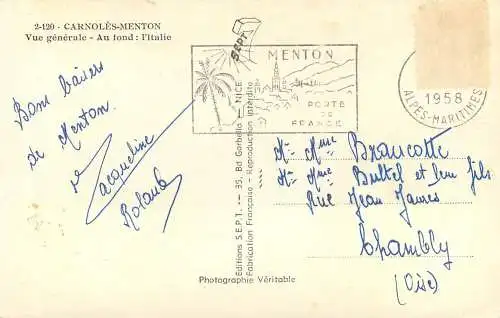 2-120 - CARNOLÈS-MENTON
Vue générale - Au fond : l'Italie
SEPT
MENTON
PORTE
DE
FRANCE
1958
ALPES-MARITIMES
Bons baisers
de Menton.
Jacqueline
Roland
Editions S.E.P.T. - 35, Bd Gorbella - NICE
Fabrication Française - Reproduction interdite
Photographie Véritable
Mr Mme Braucotte
Mr Mme Buttel et leur fils
Rue Jean Jaurès
Chambly
(Oise)